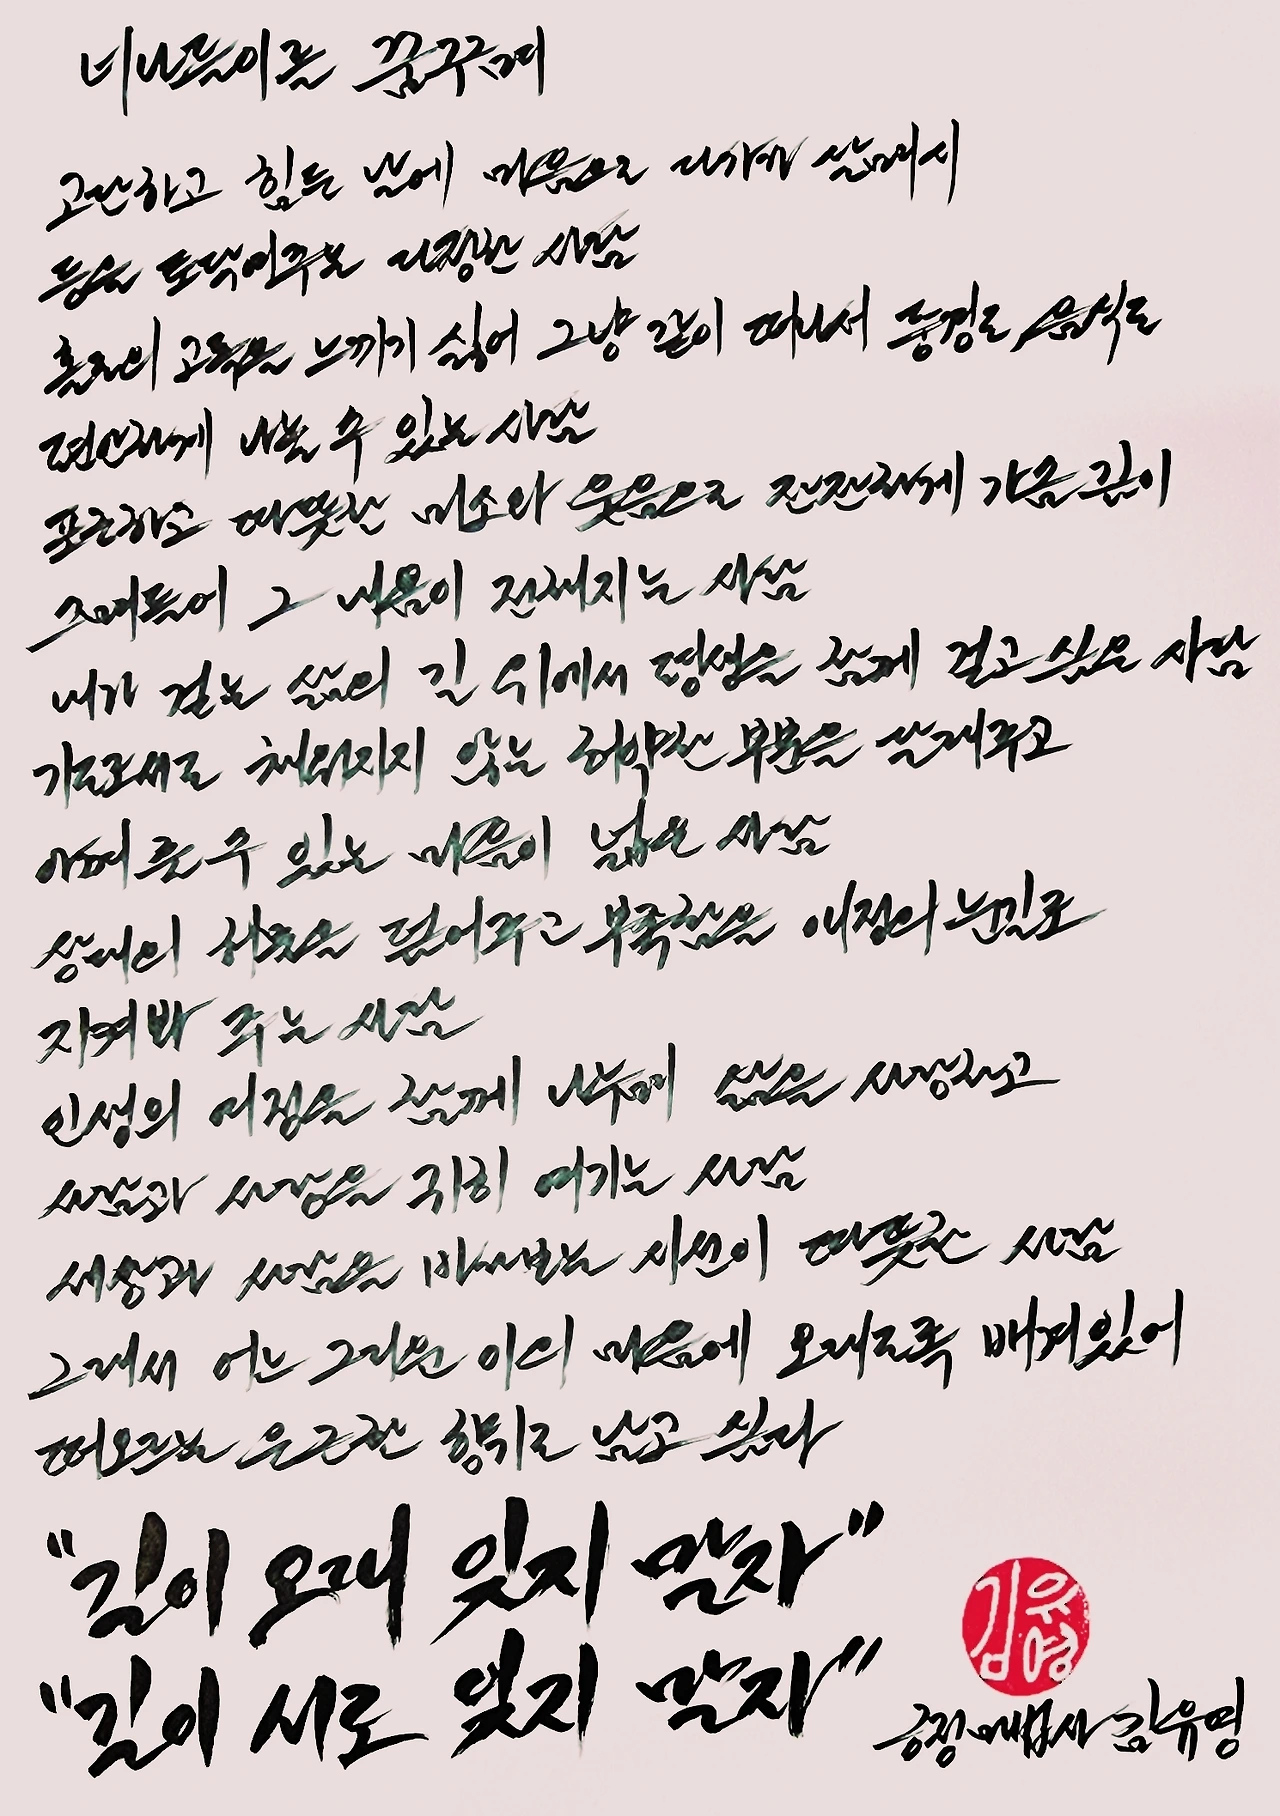 너나들이를 꿈꾸며
고단하고 힘든 날에 마음으로 다가가 살며시
등을 토닥여주는 다정한 사람
혼자의 고독을 느끼기 싫어 그냥 같이 떠나서 풍경도 음식도
편안하게 나눌 수 있는 사람
포근하고 따뜻한 미소와 웃음으로 잔잔하게 가슴 깊이
스며들어 그 내음이 전해지는 사람
내가 걷는 삶의 길 위에서 평생을 함께 걷고 싶은 사람
가로세로 채워지지 않는 허약한 부분을 달래주고
아껴줄 수 있는 마음이 넓은 사람
상대의 허물을 덮어주고 부족함을 애정의 눈길로
지켜봐 주는 사람
인생의 여정을 함께 나누며 삶을 사랑하고
사람과 사랑을 귀히 여기는 사람
세상과 사람을 바라보는 시선이 따뜻한 사람
그래서 어느 그리운 이의 마음에 오래도록 배겨있어
떠오르는 은근한 향취로 남고 싶다
"길이 오래 잊지 말자"
"길이 서로 잊지 말자"
김유영
긍정마법사 김유영